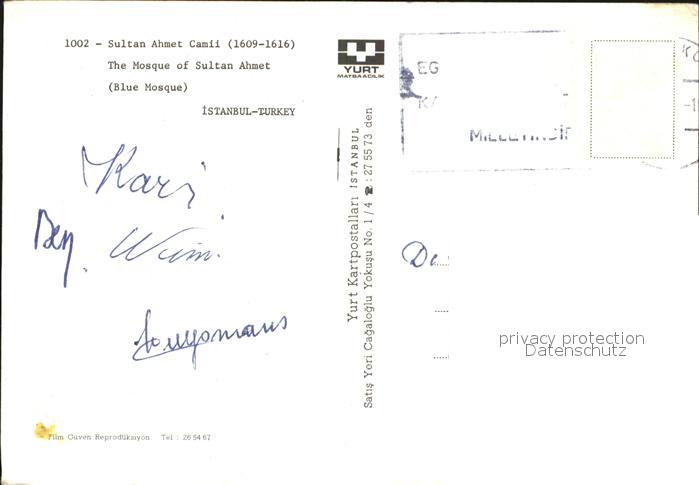 1002 - Sultan Ahmet Camii (1609-1616)
The Mosque of Sultan Ahmet
(Blue Mosque)
İSTANBUL-TURKEY
Kari
Ben
Wim.
YURT
MATBAACILIK
Yurt Kartpostalları İSTANBUL
Satış Yeri Cağaloğlu Yokuşu No. 1/4 ☎: 27 55 73 den
EG
K/
De
privacy protection
Datenschutz
Film Güven Reprodüksiyon Tel : 26 54 67